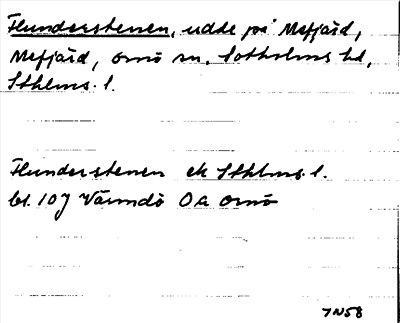 Flunderstenen, udde på Mefjärd,
Mefjärd, Ornö sn, Sotholms hd,
Sthlms. l.
Flunderstenen ek Sthlms. l.
bl. 107 Värmdö OA Ornö
7N58